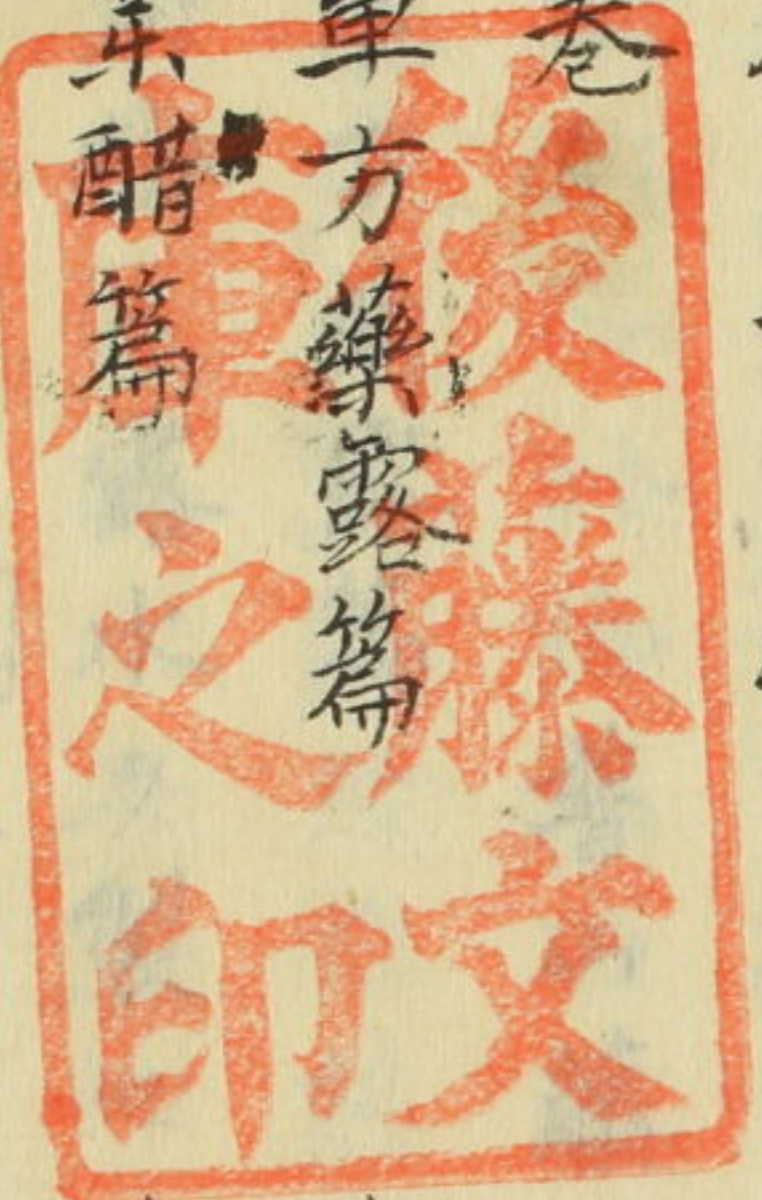 卷
単方藥露篇
醋篇
後藤文
庫之印